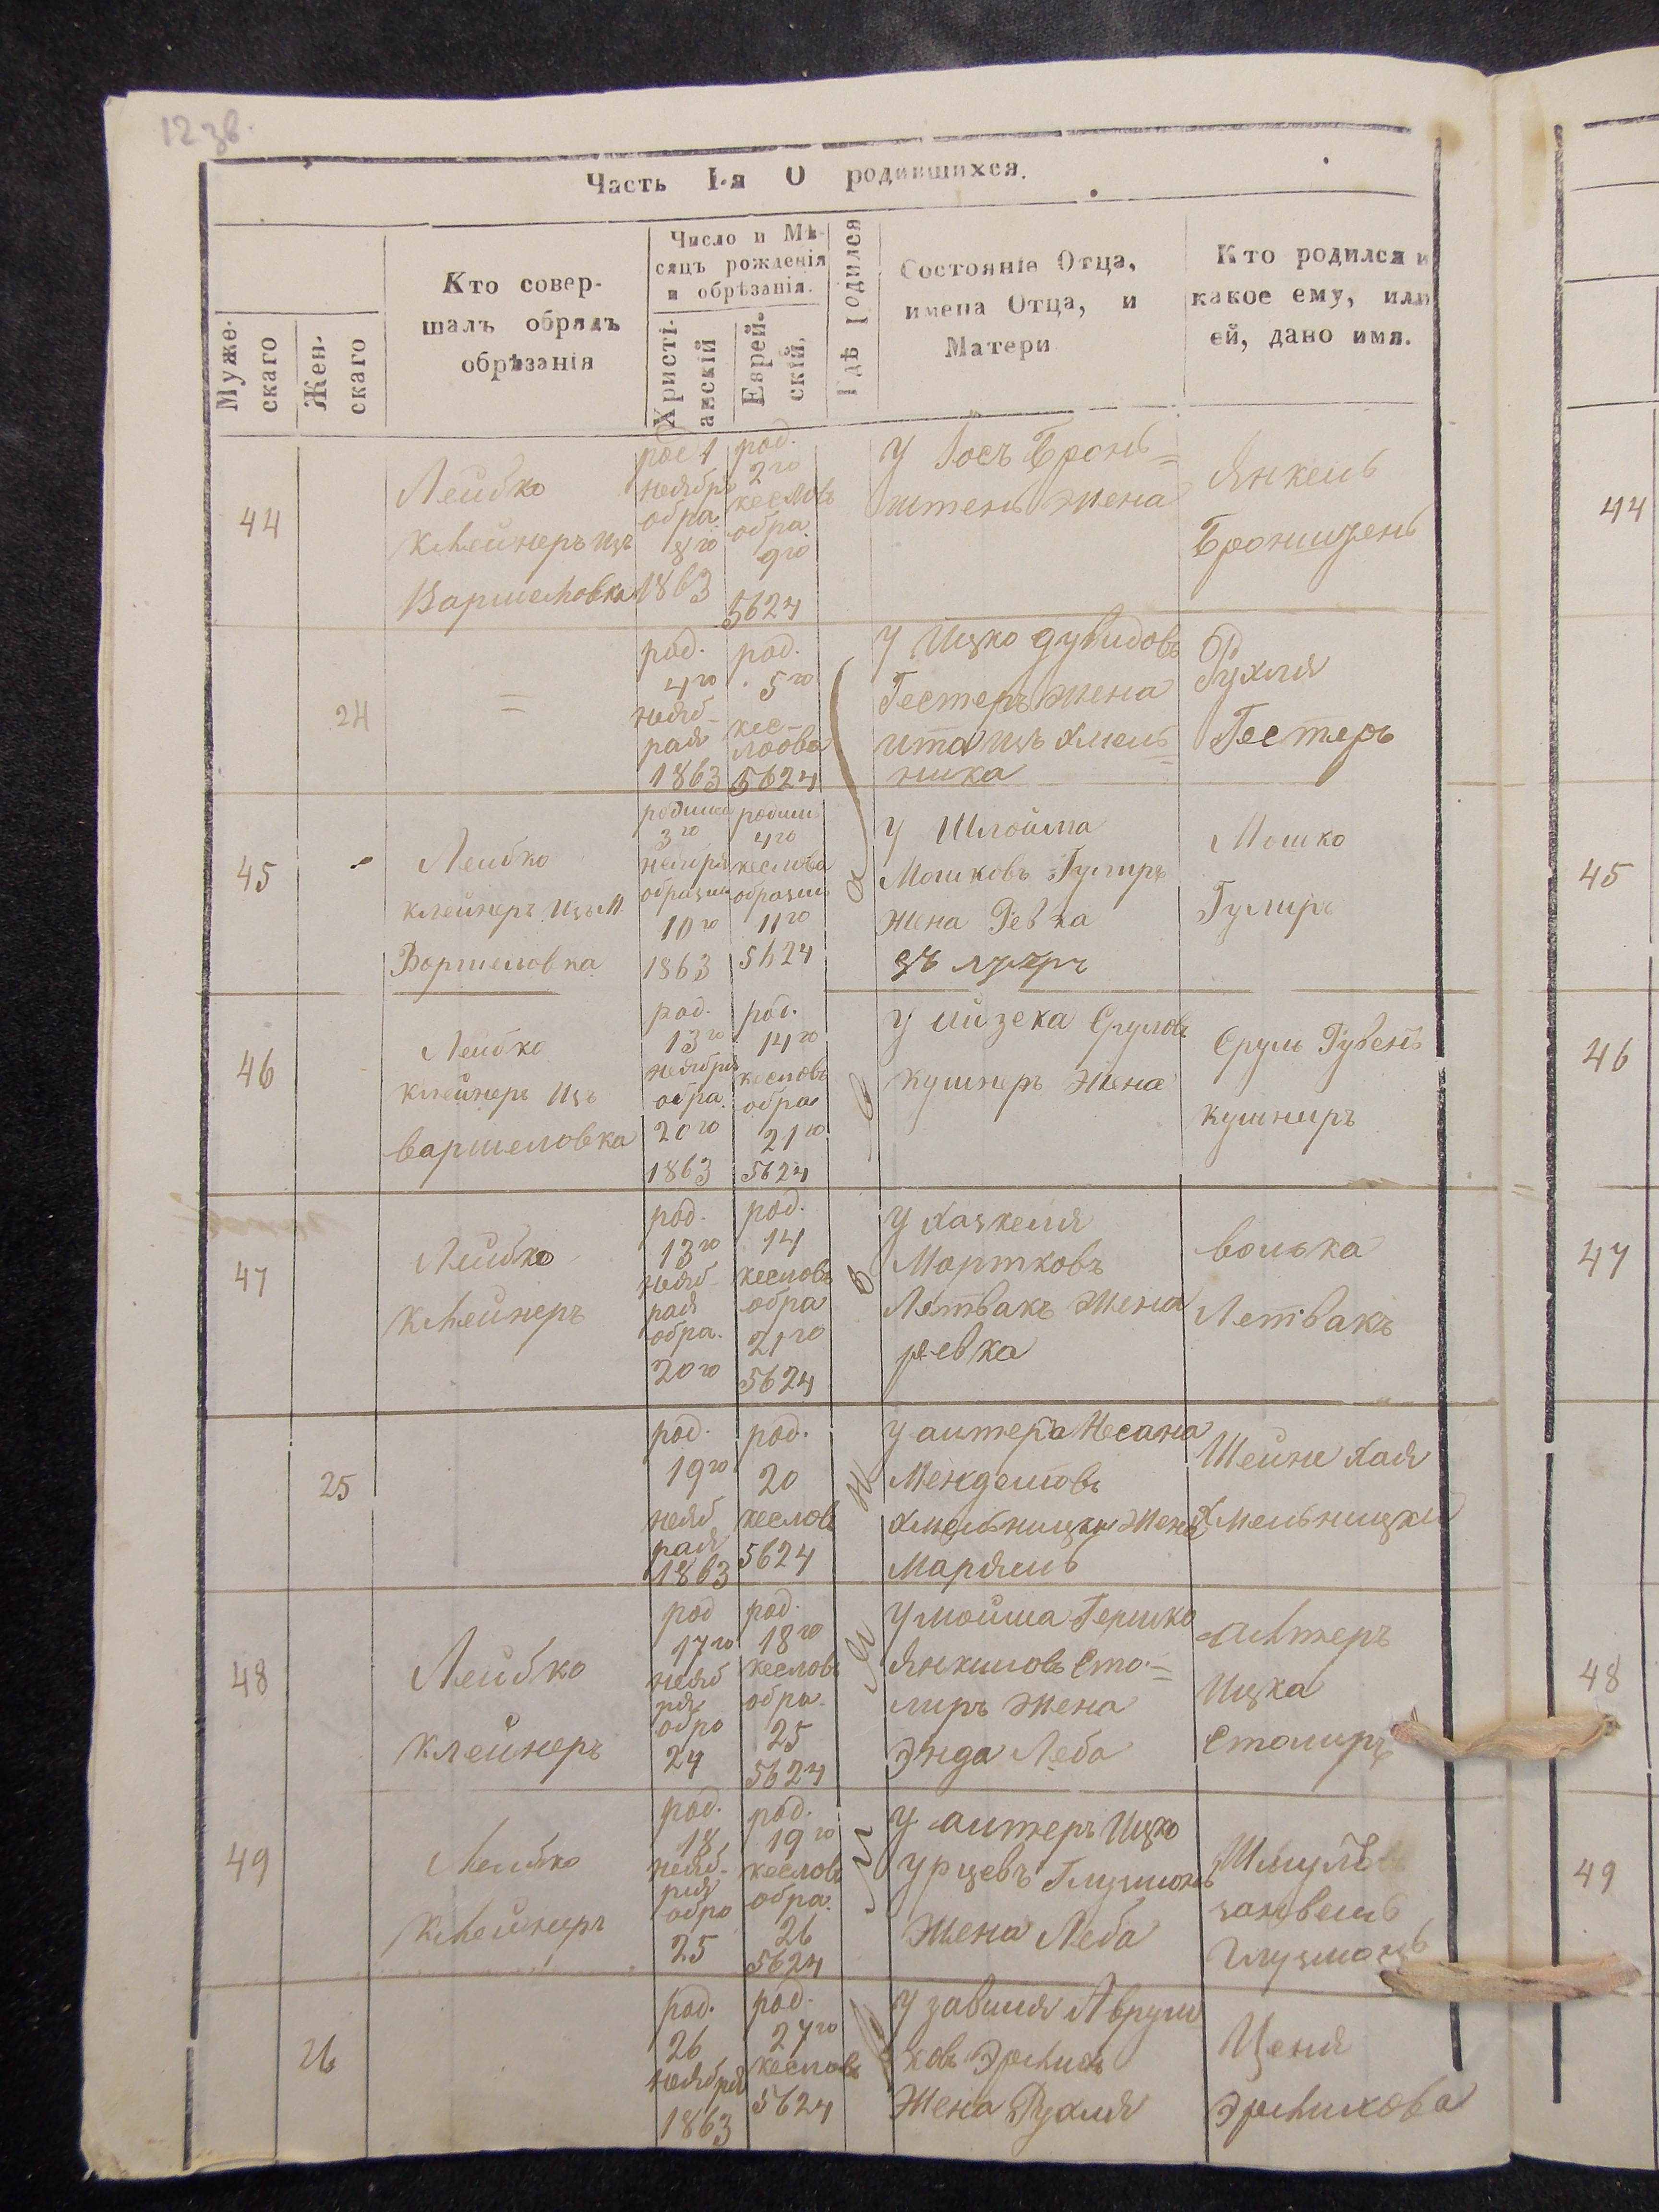 12 зв.
Часть I-я О родившихся.
Муже-
скаго
Жен-
скаго
Кто совер-
шалъ обрядъ
обрѣзанія
Число и Мѣ-
сяцъ рожденія
и обрѣзанія.
Христі-
анскій
Еврей-
скій.
Гдѣ родился
Состояніе Отца,
имена Отца, и
Матери
Кто родился и
какое ему, или
ей, дано имя.
44
Лейбко
Клейнеръ изъ
Варшеловка
1
ноябръ
обра.
8го
1863
род.
2го
кесловъ
обра
9го
5624
У Іосъ Бронь=
штень жена
Янкель
Бронштень
44
24
=
род.
4го
нояб-
рая
1863
род.
5го
кес-
лова
5624
У Ицко Дувидовъ
Гестеръ жена
ита изъ Хмель=
ника
Рухля
Гестеръ
45
Лейбко
Клейнеръ изъ М
Воршеловка
3го
10го
1863
4го
кеслова
11го
5624
У Шлойма
Мошковъ Гулиръ
жена Ревка
Мошко
Гулиръ
45
46
Лейбко
Клейнеръ изъ
Варшеловка
род.
13го
ноября
обра.
20го
1863
род.
14го
кесловъ
обра
21го
5624
У Айзека Сруловъ
Кушнеръ жена
Сруль Рубенъ
Кушниръ
46
47
Лейбко
Клейнеръ
род.
13го
нояб-
рая
обра.
20го
род.
14
кесловъ
обра
21го
5624
У Хацкеля
Мортковъ
Летвакъ жена
ревка
волька
Летвакъ
47
25
род.
19го
нояб
рая
1863
род.
20
кесловъ
5624
У алтера Несана
Менделовъ
Хмельницки жена
Марямъ
Шейне Хая
Хмельницки
48
Лейбко
Клейнеръ
род
17го
нояб
ря
обро
24
род.
18го
кесловъ
обра.
25
5624
У мойша Гершко
Янкиловъ Сто=
лиръ жена
Энда Леба
Алтеръ
Ицка
Столиръ
48
49
Лейбко
Клейниръ
род.
18
нояб-
ря
обро
25
род.
19го
кесловъ
обра.
26
5624
У алтеръ Ицко
урцевъ
жена Леба
занвель
49
26
род.
26
ноября
1863
род.
27го
кесловъ
5624
У завиля Аврум
ковъ Эрлихъ
жена Рухля
Ценя
Эрлихова